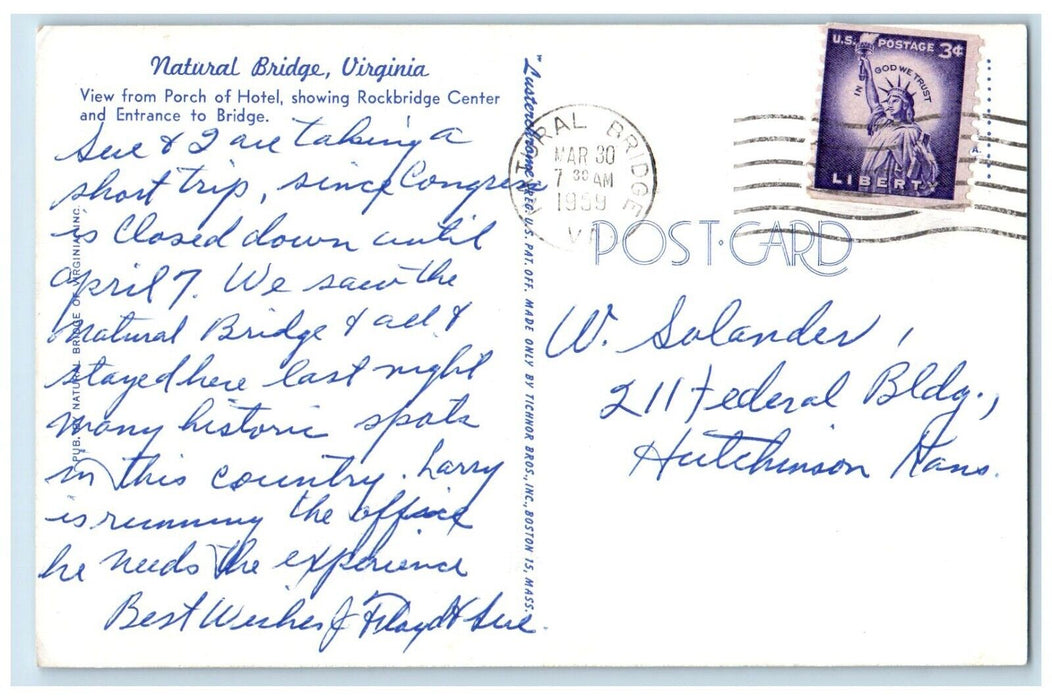 Natural Bridge, Virginia
View from Porch of Hotel, showing Rockbridge Center
and Entrance to Bridge.
Sue & I are taking a
short trip, since Congress
is closed down until
April 7. We saw the
Natural Bridge & all &
stayed here last night
many historic spots
in this country. Larry
is running the office
he needs the experience
Best Wishes J Floyd & Sue.
PUB. BY NATURAL BRIDGE OF VIRGINIA, INC.
"Lusterchrome" REG. U.S. PAT. OFF. MADE ONLY BY TICHNOR BROS., INC., BOSTON 15, MASS.
NATURAL BRIDGE
MAR 30
7 30 AM
1959
VA
U.S. POSTAGE 3¢
IN GOD WE TRUST
LIBERTY
POST CARD
W. Solander,
211 Federal Bldg.,
Hutchinson Kans.